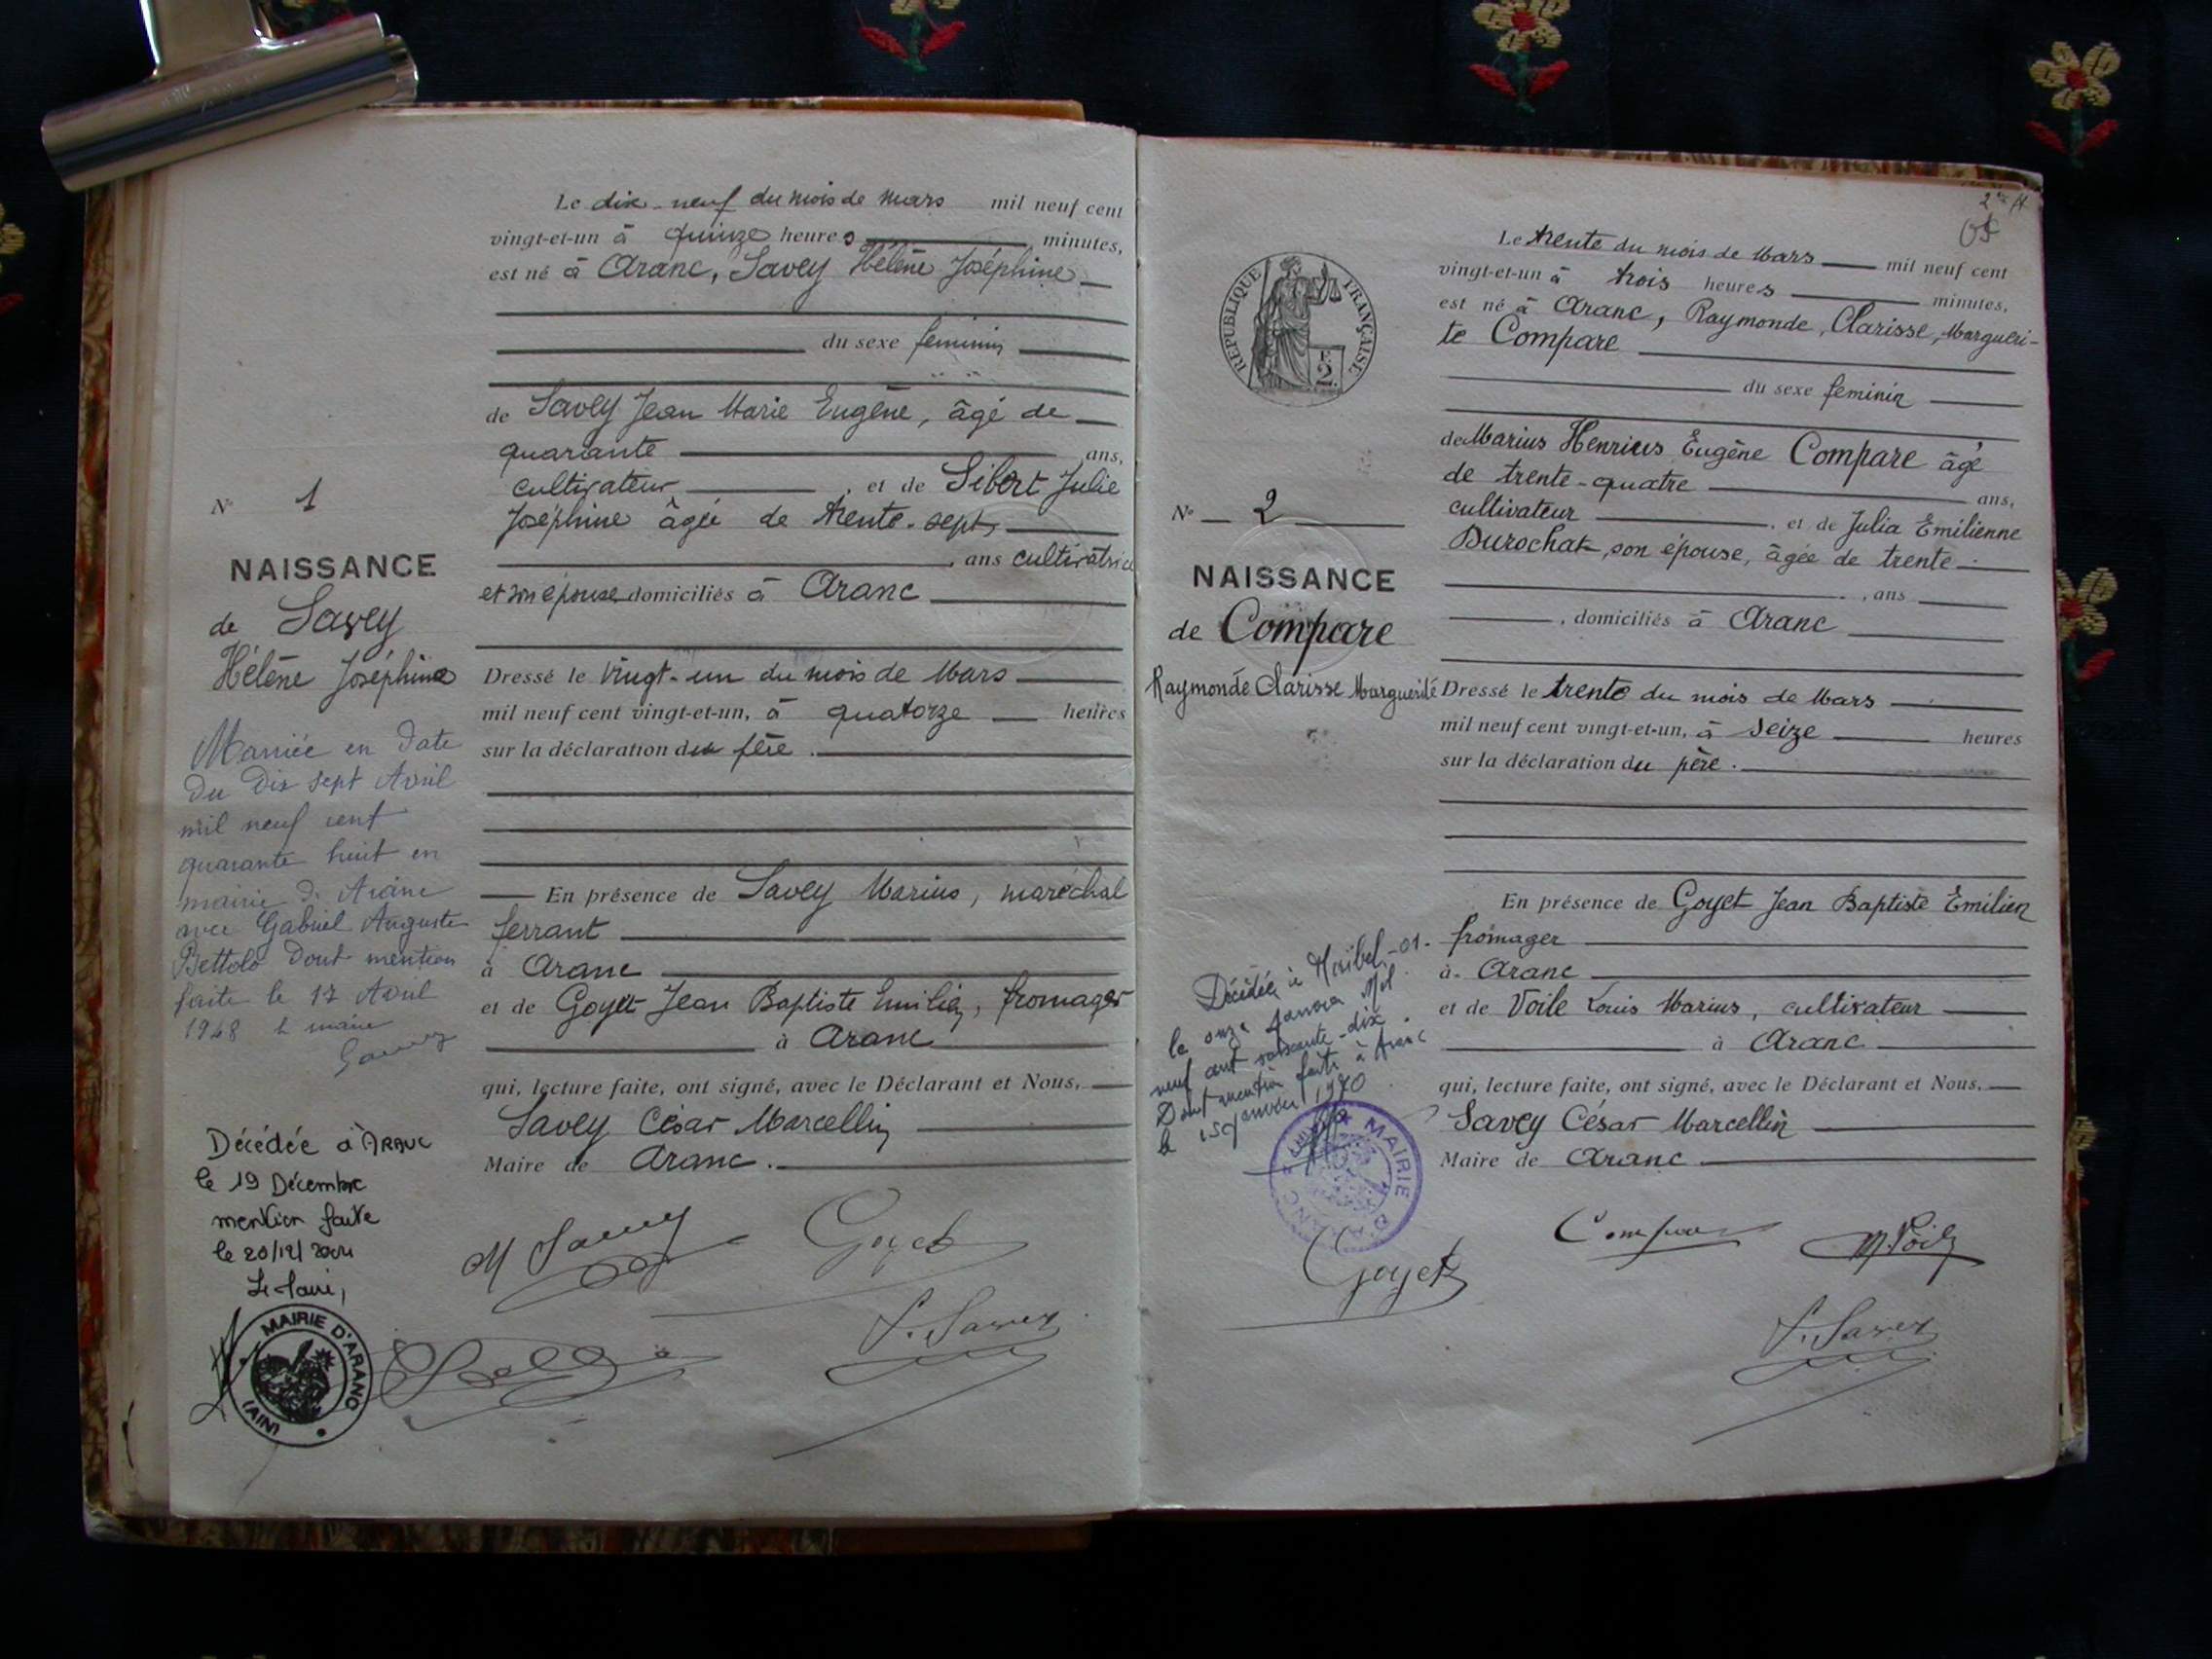 Le dix-neuf du mois de Mars mil neuf cent
vingt-et-un à quinze heures minutes,
est né à Aranc, Savey Hélène Joséphine
du sexe feminin
de Savey Jean Marie Eugène, âgé de
quarante ans,
cultivateur, et de Sibert Julie
Joséphine âgée de trente-sept
, ans cultivatrice
et son épouse domiciliés à Aranc
Dressé le vingt-un du mois de Mars
mil neuf cent vingt-et-un, à quatorze heures
sur la déclaration du père.
En présence de Savey Marius, maréchal
ferrant
à Aranc
et de Goyet Jean Baptiste Emilien, fromager
à Aranc
qui, lecture faite, ont signé, avec le Déclarant et Nous,
Savey César Marcellin
Maire de Aranc.
M Savey
Goyet
Savey
N° 1
NAISSANCE
de Savey
Hélène Joséphine
Mariée en date
du Dix sept Avril
mil neuf cent
quarante huit en
mairie d'Aranc
avec Gabriel Auguste
Bettolo dont mention
faite le 17 Avril
1948 le maire
Décédée à ARANC
le 19 Décembre
mention faite
le 20/12/
Le Maire,
MAIRIE D'ARANC
(AIN)
Le trente du mois de Mars mil neuf cent
vingt-et-un à trois heures minutes,
est né à Aranc, Raymonde, Clarisse, Margueri-
te Compare
du sexe feminin
de Marius Henrius Eugène Compare âgé
de trente-quatre ans,
cultivateur, et de Julia Emilienne
Durochat, son épouse, âgée de trente
, ans
, domiciliés à Aranc
Dressé le trente du mois de Mars
mil neuf cent vingt-et-un, à seize heures
sur la déclaration du père.
En présence de Goyet Jean Baptiste Emilien
fromager
à Aranc
et de Voile Louis Marius, cultivateur
à Aranc
qui, lecture faite, ont signé, avec le Déclarant et Nous,
Savey César Marcellin
Maire de Aranc
Compare
M. Voile
Goyet
Savey
RÉPUBLIQUE FRANÇAISE
2
N° 2
NAISSANCE
de Compare
Raymonde Clarisse Marguerite
Décédée à Miribel-01-
le onze janvier Mil
neuf cent soixante-dix.
Dont mention faite à Aranc
le 15 janvier 1970
MAIRIE D'ARANC